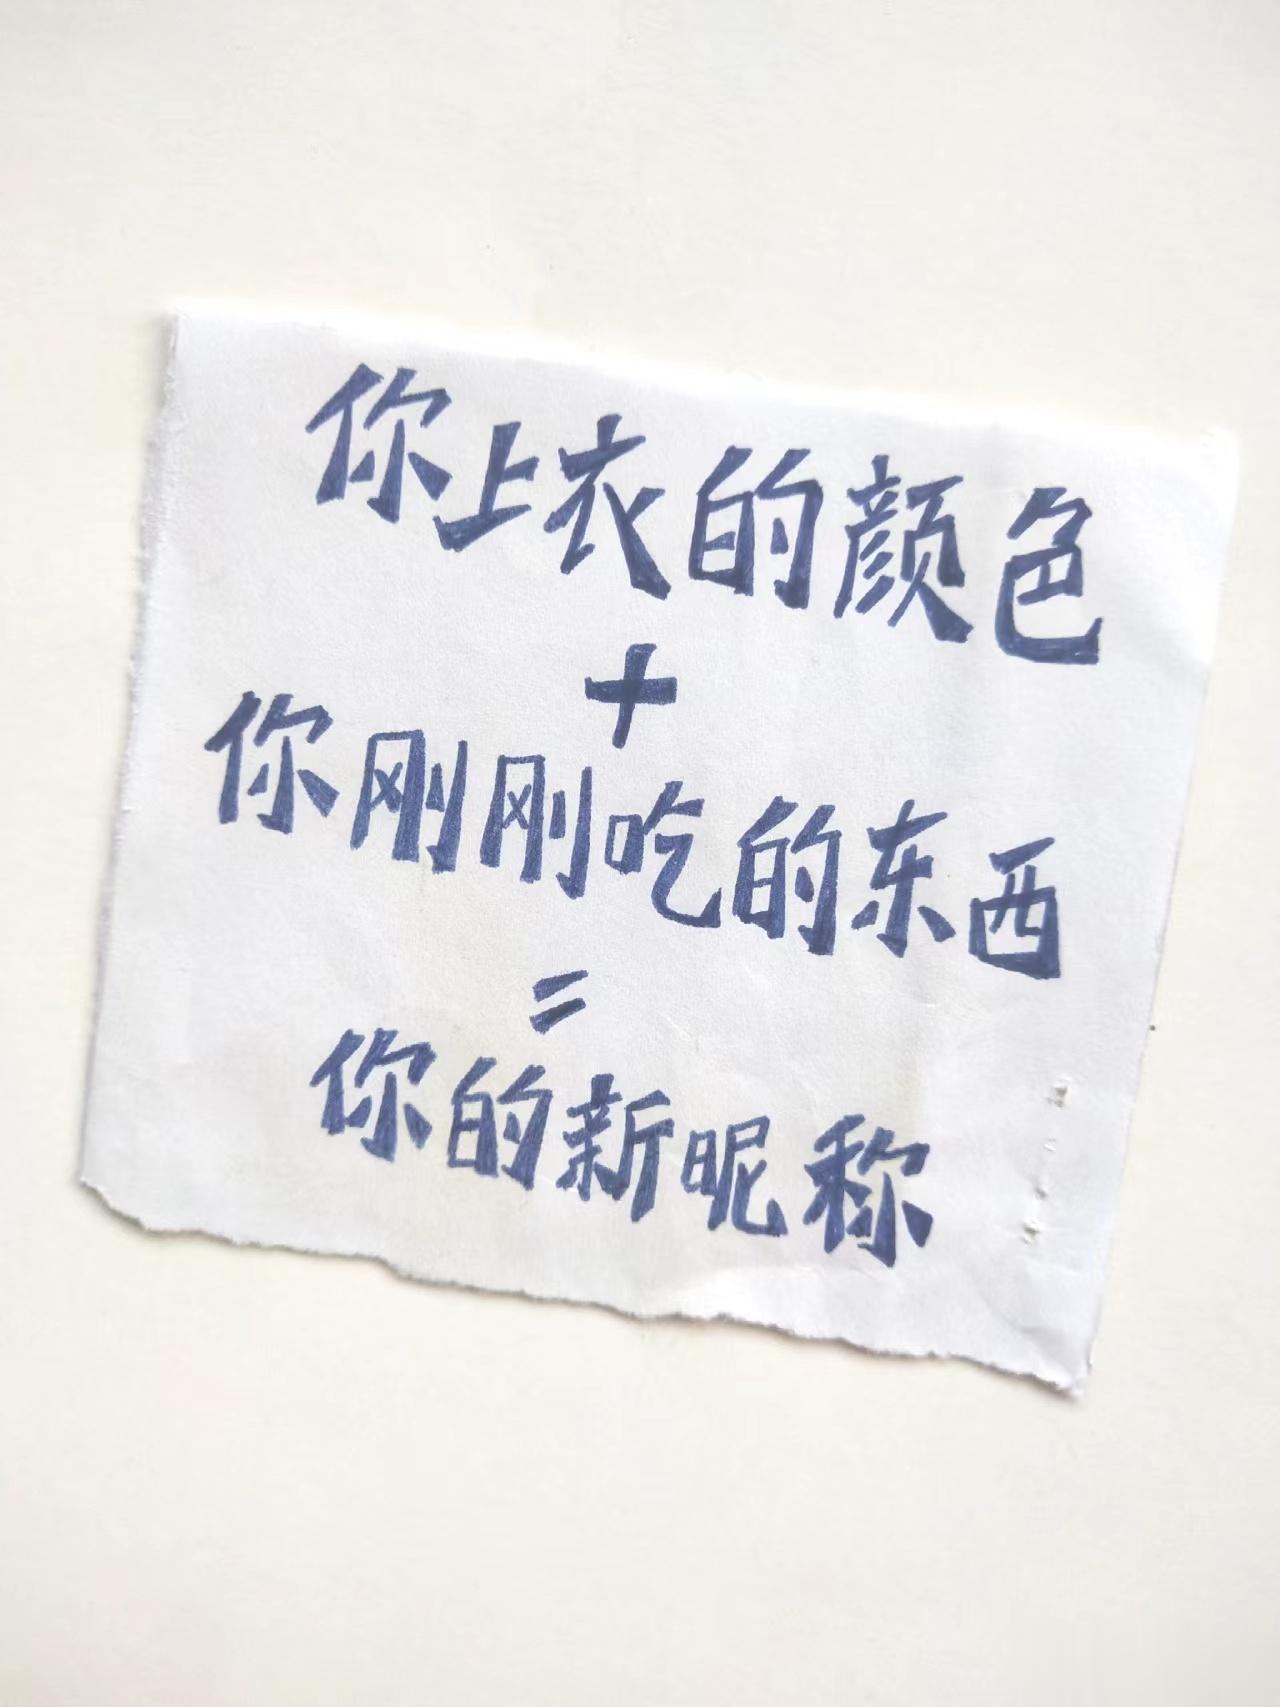 你上衣的颜色
+
你刚刚吃的东西
=
你的新昵称